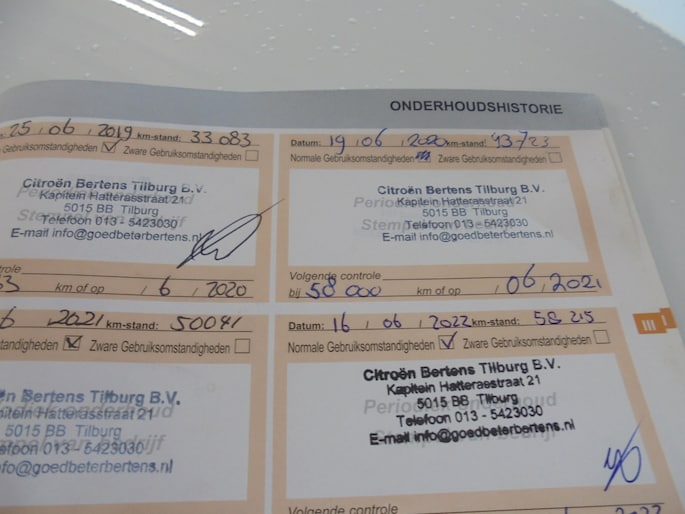 ONDERHOUDSHISTORIE
25 / 06 / 2019 km-stand: 33 083
Gebruiksomstandigheden Zware Gebruiksomstandigheden
Citroën Bertens Tilburg B.V.
Kapitein Hatterasstraat 21
5015 BB Tilburg
Telefoon 013 - 5423030
E-mail info@goedbeterbertens.nl
km of op / 6 / 2020
Datum: 19 / 06 / 2020 km-stand: 43723
Normale Gebruiksomstandigheden Zware Gebruiksomstandigheden
Citroën Bertens Tilburg B.V.
Kapitein Hatterasstraat 21
5015 BB Tilburg
Telefoon 013 - 5423030
E-mail info@goedbeterbertens.nl
Volgende controle
bij 58 000 km of op / 06 / 2021
6 2021 km-stand: 50041
Zware Gebruiksomstandigheden
Bertens Tilburg B.V.
Hatterasstraat 21
5015 BB Tilburg
013 - 5423030
@goedbeterbertens.nl
Datum: 16 / 06 / 2022 km-stand: 58 215
Normale Gebruiksomstandigheden Zware Gebruiksomstandigheden
Citroën Bertens Tilburg B.V.
Kapitein Hatterasstraat 21
5015 BB Tilburg
Telefoon 013 - 5423030
E-mail info@goedbeterbertens.nl
Volgende controle
III